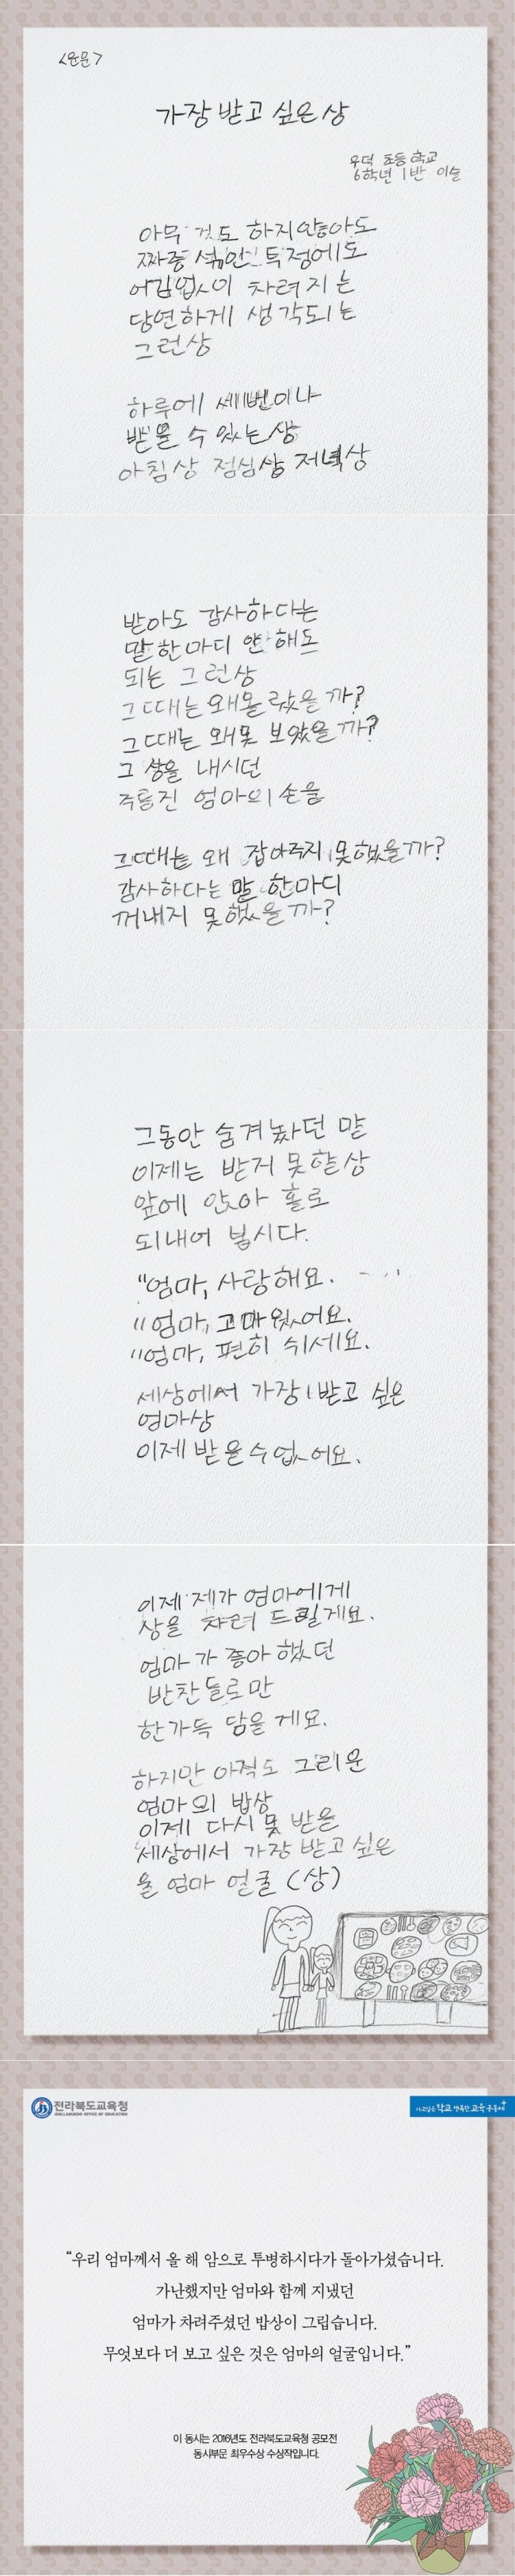 <운문>
가장 받고 싶은 상
우덕 초등학교
6학년 1반 이슬
아무 것도 하지않아도
짜증 섞인 투정에도
어김없이 차려지는
당연하게 생각되는
그런상
하루에 세번이나
받을 수 있는상
아침상 점심상 저녁상
받아도 감사하다는
말한마디 안해도
되는 그런상
그때는 왜몰랐을까?
그때는 왜못 보았을까?
그 상을 내시던
주름진 엄마의 손을
그때는 왜 잡아주지 못했을까?
감사하다는 말 한마디
꺼내지 못했을까?
그동안 숨겨놨던 말
이제는 받지 못할상
앞에 앉아 홀로
되내어 봅시다.
"엄마, 사랑해요.
"엄마, 고마웠어요.
"엄마, 편히 쉬세요.
세상에서 가장 받고 싶은
엄마상
이제 받을수없어요.
이제 제가 엄마에게
상을 차려 드릴게요.
엄마가 좋아했던
반찬들로만
한가득 담을게요.
하지만 아직도 그리운
엄마의 밥상
이제 다시 못 받을
세상에서 가장 받고 싶은
울 엄마 얼굴 (상)
전라북도교육청
JEOLLABUKDO OFFICE OF EDUCATION
가고싶은 학교 행복한 교육공동체
"우리 엄마께서 올 해 암으로 투병하시다가 돌아가셨습니다.
가난했지만 엄마와 함께 지냈던
엄마가 차려주셨던 밥상이 그립습니다.
무엇보다 더 보고 싶은 것은 엄마의 얼굴입니다."
이 동시는 2016년도 전라북도교육청 공모전
동시부문 최우수상 수상작입니다.